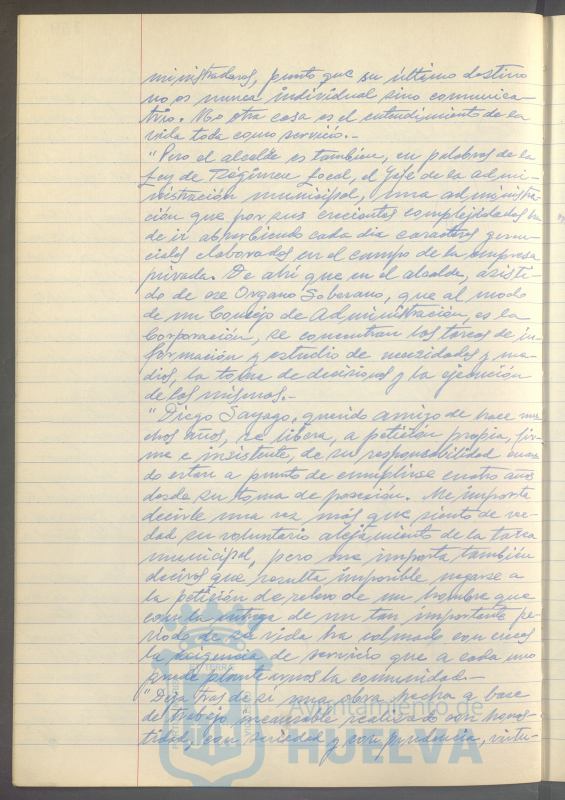 ministradores, puesto que su último destino
no es nunca individual sino comunica-
trio. No otra cosa es el entendimiento de la
vida toda como servicio.-
"Pero el alcalde es también, en palabras de la
Ley de Régimen Local, el Jefe de la admi-
nistración municipal, una administra-
ción que por sus crecientes complejidades ha
de ir absorbiendo cada dia caracteres geren-
ciales elaborados en el campo de la empresa
privada. De ahí que en el alcalde, asisti-
do de ese Organo Soberano, que al modo
de un Consejo de Administración, es la
Corporación, se concentran las tareas de in-
formación y estudio de necesidades y me-
dios, la toma de decisiones y la ejecución
de las mismas.-
"Diego Sayago, querido amigo de hace mu-
chos años, se libera, a petición propia, fir-
me e insistente, de su responsabilidad cuan-
do estan a punto de cumplirse cuatro años
desde su toma de posesión. Me importa
decirle una vez más que siento de ver-
dad su voluntario alejamiento de la tarea
municipal, pero me importa también
deciros que resulta imposible negarse a
la petición de relevo de un hombre que
con la entrega de un tan importante pe-
riodo de su vida ha colmado con creces
la exigencia de servicio que a cada uno
puede plantearnos la comunidad.-
"Deja tras de sí una obra hecha a base
de trabajo incansable realizado con hones-
tidad, con seriedad y con prudencia, virtu-
Ayuntamiento de
HUELVA